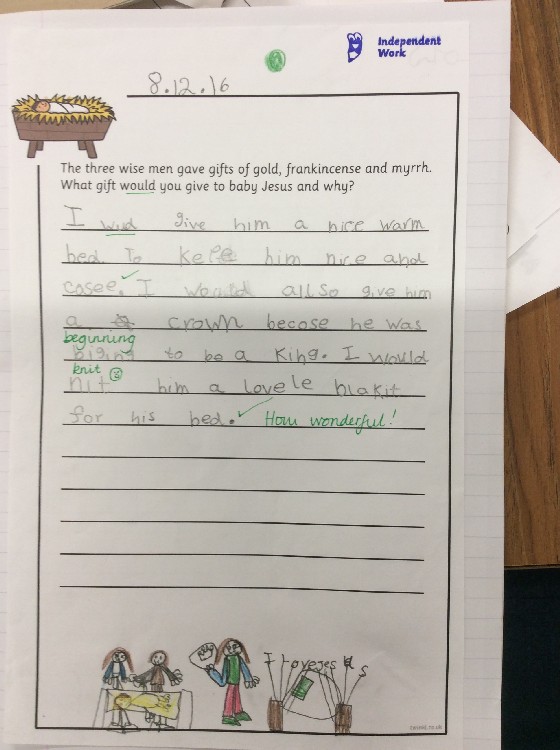 Independent
Work
8.12.16
The three wise men gave gifts of gold, frankincense and myrrh.
What gift would you give to baby Jesus and why?
I wud give him a nice warm
bed To keep him nice and
cosee. I would allso give him
a crown becose he was
beginning
biging to be a King. I would
knit
nit him a lovele blakit
for his bed. How wonderful!
I lovejes us